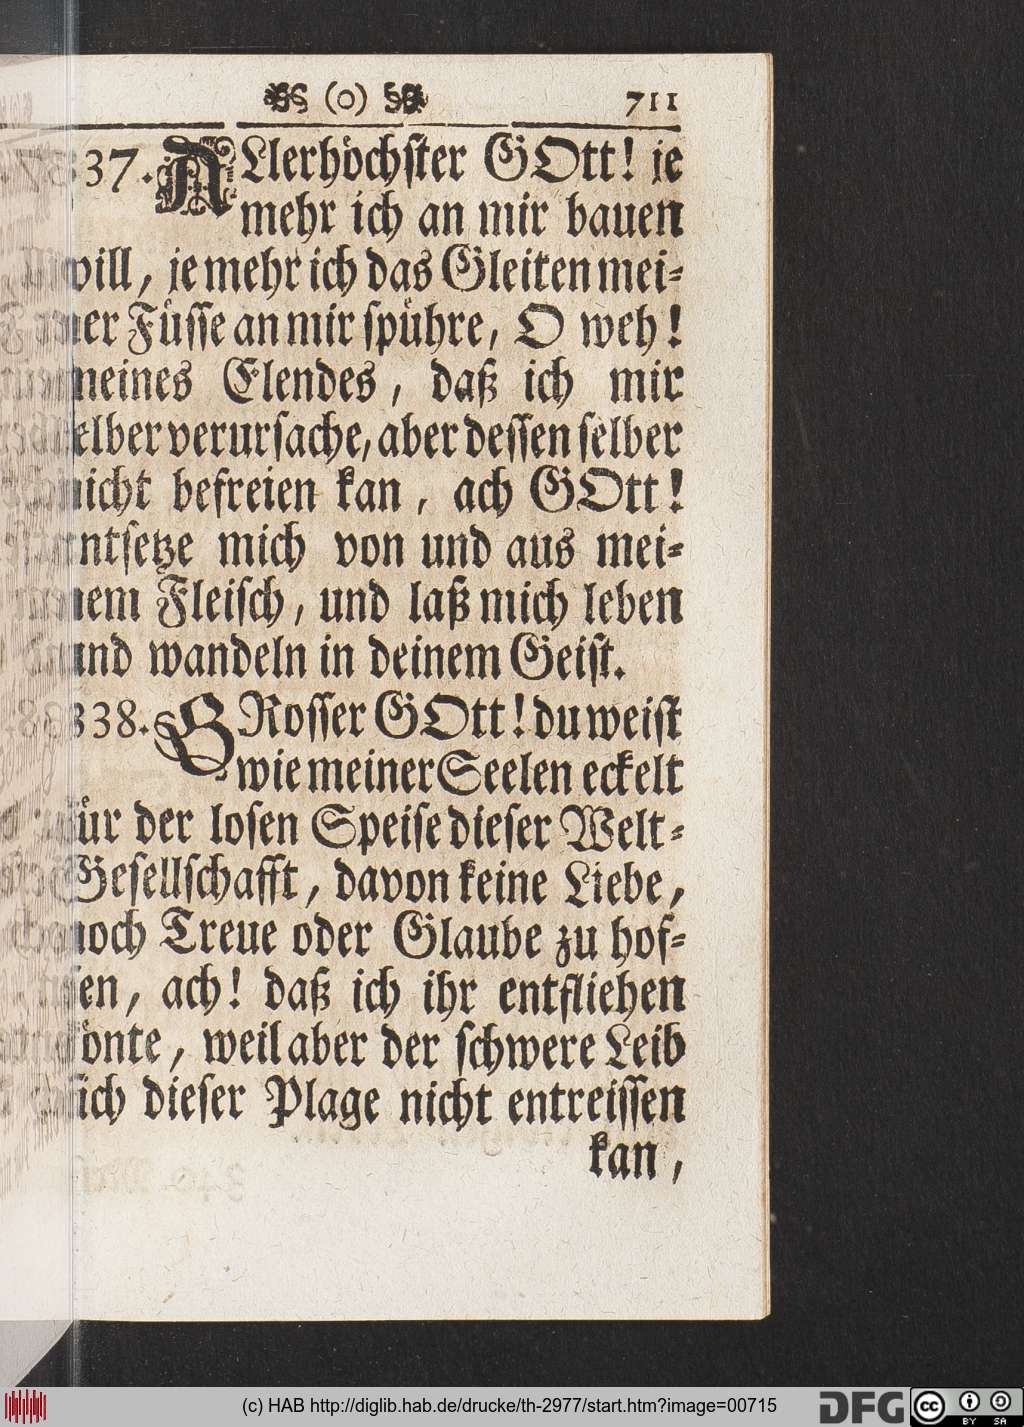 (o) 711
337. ALlerhöchster GOtt! je
mehr ich an mir bauen
will, je mehr ich das Gleiten mei⸗
ner Füsse an mir spühre, O weh!
meines Elendes, daß ich mir
selber verursache, aber dessen selber
nicht befreien kan, ach GOtt!
entsetze mich von und aus mei⸗
nem Fleisch, und laß mich leben
und wandeln in deinem Geist.
338. GRosser GOtt! du weist
wie meiner Seelen eckelt
für der losen Speise dieser Welt⸗
Gesellschafft, davon keine Liebe,
noch Treue oder Glaube zu hof⸗
fen, ach! daß ich ihr entfliehen
könte, weil aber der schwere Leib
sich dieser Plage nicht entreissen
kan,
(c) HAB http://diglib.hab.de/drucke/th-2977/start.htm?image=00715
DFG
cc BY SA